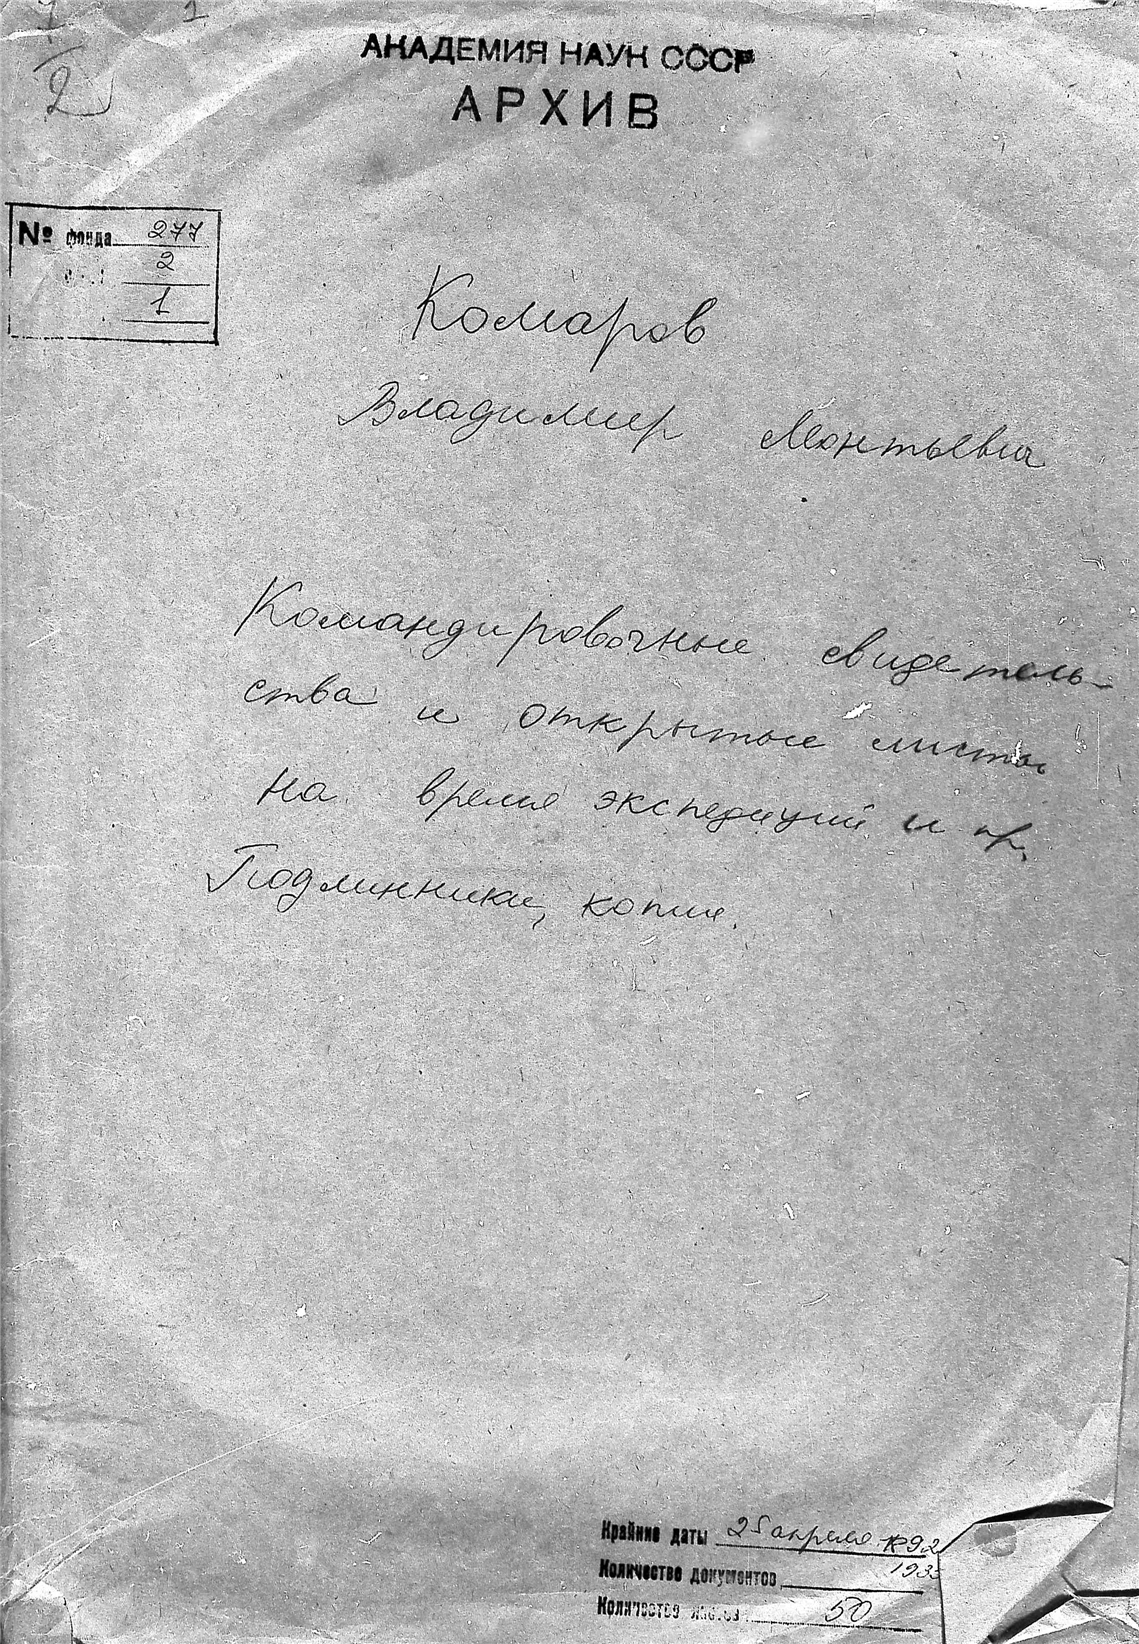 1
2
АКАДЕМИЯ НАУК СССР
АРХИВ
№ фонда 277
2
1
Комаров
Владимир Леонтьевич
Командировочные свидетель-
ства и открытые листы
на время экспедиций и пр.
Подлинники, копии.
Крайние даты 25 апреля 1892
193
Количество документов
Количество листов 50